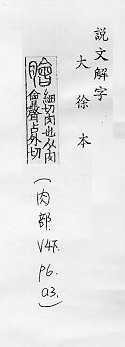 說文解字
大徐本
膾
細切肉也从肉
會聲古外切
(肉部.
V4下.
P6.
03.)